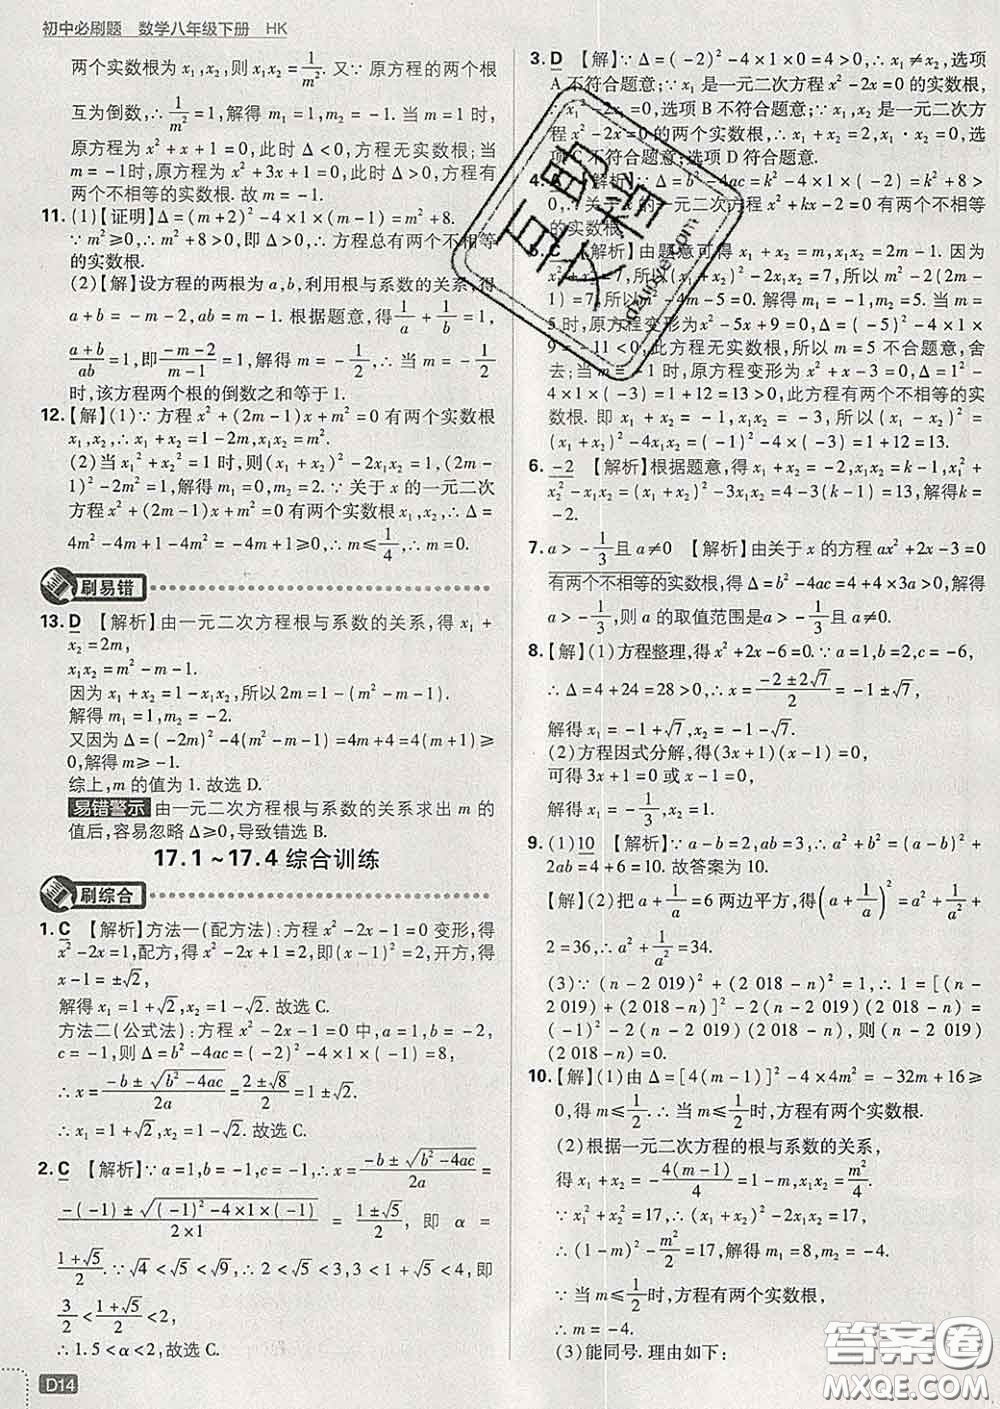 初中必刷题　数学八年级下册　HK
两个实数根为 x₁,x₂,则 x₁x₂ = 1/m². 又∵ 原方程的两个根
互为倒数,∴ 1/m² = 1,解得 m₁ = 1,m₂ = -1. 当 m = 1 时,
原方程为 x² + x + 1 = 0,此时 Δ < 0,方程无实数根;当
m = -1时,原方程为 x² + 3x + 1 = 0,此时 Δ > 0,方程有
两个不相等的实数根. 故 m = -1.
11. (1)【证明】Δ = (m + 2)² - 4 × 1 × (m - 1) = m² + 8.
∵ m² ≥ 0,∴ m² + 8 > 0,即 Δ > 0,∴ 方程总有两个不相等
的实数根.
(2)【解】设方程的两根为 a,b,利用根与系数的关系,得
a + b = -m - 2,ab = m - 1. 根据题意,得 1/a + 1/b = 1,∴
(a + b)/ab = 1,即 (-m - 2)/(m - 1) = 1,解得 m = -1/2,∴ 当 m = -1/2
时,该方程两个根的倒数之和等于 1.
12. 【解】(1)∵ 方程 x² + (2m - 1)x + m² = 0 有两个实数根
x₁,x₂,∴ x₁ + x₂ = 1 - 2m,x₁x₂ = m².
(2)当 x₁² + x₂² = 1 时,则(x₁ + x₂)² - 2x₁x₂ = 1,∴ 2m² -
4m = 0,解得 m₁ = 0,m₂ = 2. ∵ 关于 x 的一元二次
方程 x² + (2m - 1)x + m² = 0 有两个实数根 x₁,x₂,∴ Δ =
4m² - 4m + 1 - 4m² = -4m + 1 ≥ 0,∴ m ≤ 1/4,∴ m = 0.
刷易错
13. D 【解析】由一元二次方程根与系数的关系,得 x₁ +
x₂ = 2m,
x₁x₂ = m² - m - 1.
因为 x₁ + x₂ = 1 - x₁x₂,所以 2m = 1 - (m² - m - 1).
解得 m₁ = 1,m₂ = -2.
又因为 Δ = (-2m)² - 4(m² - m - 1) = 4m + 4 ≥
0,解得 m ≥ -1.
综上,m 的值为 1. 故选 D.
易错警示 由一元二次方程根与系数的关系求出 m 的
值后,容易忽略 Δ ≥ 0,导致错选 B.
17.1~17.4 综合训练
刷综合
1. C 【解析】方法一(配方法):方程 x² - 2x - 1 = 0 变形,得
x² - 2x = 1,配方,得 x² - 2x + 1 = 2,即(x - 1)² = 2,开方,得
x - 1 = ±√2,
解得 x₁ = 1 + √2,x₂ = 1 - √2. 故选 C.
方法二(公式法):方程 x² - 2x - 1 = 0 中,a = 1,b = -2,
c = -1,则 Δ = b² - 4ac = (-2)² - 4 × 1 × (-1) = 8,
∴ x = (-b ± √(b² - 4ac))/2a = (2 ± √8)/2 = 1 ± √2,
∴ x₁ = 1 + √2,x₂ = 1 - √2. 故选 C.
2. C 【解析】∵ a = 1,b = -1,c = -1,∴ x = (-b ± √(b² - 4ac))/2a =
(-(-1) ± √((-1)² - 4 × 1 × (-1)))/(2 × 1) = (1 ± √5)/2, 即 α =
(1 + √5)/2. ∵ √4 < √5 < √9,∴ 2 < √5 < 3,3 < 1 + √5 < 4,即
3/2 < (1 + √5)/2 < 2,
∴ 1.5 < α < 2. 故选 C.
D14
3. D 【解析】∵ Δ = (-2)² - 4 × 1 × 0 = 4 > 0,∴ x₁ ≠ x₂,选项
A 不符合题意;∵ x₁ 是一元二次方程 x² - 2x = 0 的实数根,
∴ x₁² - 2x₁ = 0,选项 B 不符合题意;∵ x₁,x₂是一元二次方
程 x² - 2x = 0 的两个实数根,∴ x₁ + x₂ = 2,x₁·x₂ = 0,选
项 C 不符合题意;选项 D 符合题意.
4. 【解析】∵ Δ = b² - 4ac = k² - 4 × 1 × (-2) = k² + 8 >
0,∴ 关于 x 的一元二次方程 x² + kx - 2 = 0 有两个不相等
的实数根.
5. C 【解析】由题意可得 x₁ + x₂ = m,x₁x₂ = 2m - 1. 因为
x₁² + x₂² = 7,所以(x₁ + x₂)² - 2x₁x₂ = 7,所以 m² - 2(2m -
1) = 7,所以 m² - 4m - 5 = 0. 解得 m₁ = -1,m₂ = 5. 当 m =
5 时,原方程变形为 x² - 5x + 9 = 0,Δ = (-5)² - 4 × 1 ×
9 = -11 < 0,此方程无实数根,所以 m = 5 不合题意,舍
去;当 m = -1时,原方程变形为 x² + x - 3 = 0,Δ = 1² -
4 × 1 × (-3) = 1 + 12 = 13 > 0,此方程有两个不相等的实
数根. 即 x₁ + x₂ = -1,x₁x₂ = -3,所以(x₁ - x₂)² =
(x₁ + x₂)² - 4x₁x₂ = (-1)² - 4 × (-3) = 1 + 12 = 13.
6. -2 【解析】根据题意,得 x₁ + x₂ = -2,x₁x₂ = k - 1,x₁² +
x₂² - x₁x₂ = (x₁ + x₂)² - 3x₁x₂ = 4 - 3(k - 1) = 13,解得 k =
-2.
7. a > -1/3 且 a ≠ 0 【解析】由关于 x 的方程 ax² + 2x - 3 = 0
有两个不相等的实数根,得 Δ = b² - 4ac = 4 + 4 × 3a > 0,解得
a > -1/3,则 a 的取值范围是 a > -1/3 且 a ≠ 0.
8. 【解】(1)方程整理,得 x² + 2x - 6 = 0. ∵ a = 1,b = 2,c = -6,
∴ Δ = 4 + 24 = 28 > 0,∴ x = (-2 ± 2√7)/2 = -1 ± √7,
解得 x₁ = -1 + √7,x₂ = -1 - √7.
(2)方程因式分解,得(3x + 1)(x - 1) = 0,
可得 3x + 1 = 0 或 x - 1 = 0,
解得 x₁ = -1/3,x₂ = 1.
9. (1)10 【解析】∵ a - b = 2,ab = 3,∴ a² + b² = (a - b)² +
2ab = 4 + 6 = 10. 故答案为 10.
【解】(2)把 a + 1/a = 6 两边平方,得(a + 1/a)² = a² + 1/a² +
2 = 36,∴ a² + 1/a² = 34.
(3)∵ (n - 2 019)² + (2 018 - n)² = 1,∴ 1 = [(n -
2 019) + (2 018 - n)]² - 2(n - 2 019)(2 018 - n) =
(-1)² - 2(n - 2 019)(2 018 - n),则(n - 2 019)
(2 018 - n) = 0.
10. 【解】(1)由 Δ = [4(m - 1)]² - 4 × 4m² = -32m + 16 ≥
0,得 m ≤ 1/2. ∴ 当 m ≤ 1/2 时,方程有两个实数根.
(2)根据一元二次方程的根与系数的关系,
得 x₁ + x₂ = -4(m - 1)/4 = 1 - m,x₁x₂ = m²/4.
∵ x₁² + x₂² = 17,∴ (x₁ + x₂)² - 2x₁x₂ = 17,
∴ (1 - m)² - m²/2 = 17,解得 m₁ = 8,m₂ = -4.
∵ 当 m ≤ 1/2 时,方程有两个实数根,
∴ m = -4.
(3)能同号. 理由如下:
答案圈
MXQE.COM